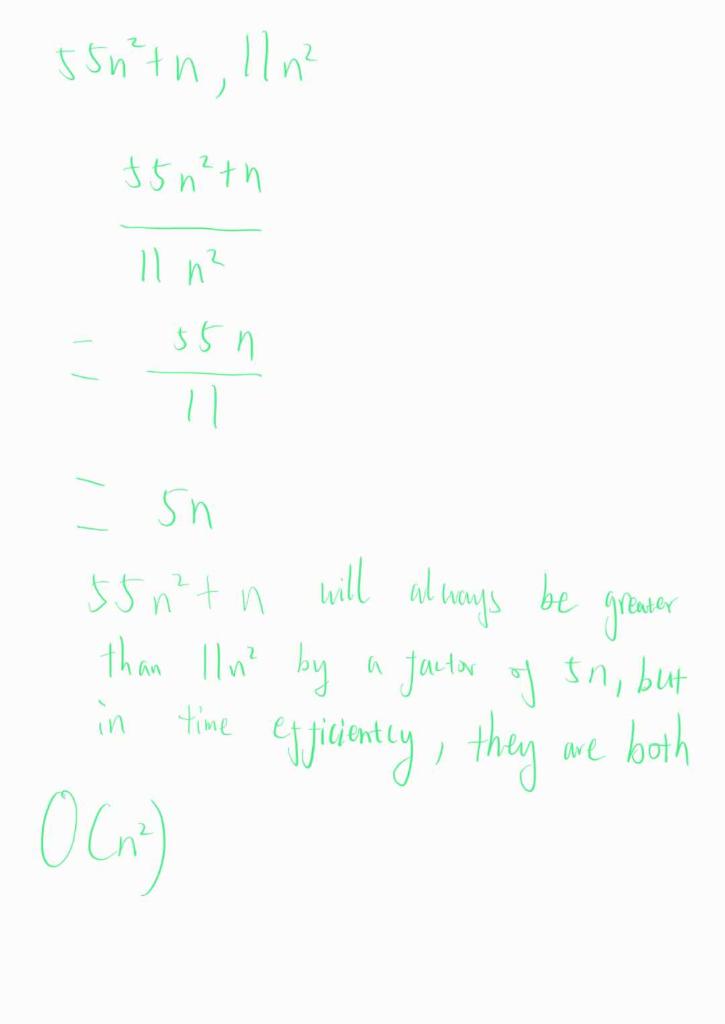 55n²+n, 11n²
55n²+n
11 n²
= 55 n
11
= 5n
55n²+ n will always be greater
than 11n² by a factor of 5n, but
in time efficiently, they are both
O(n²)